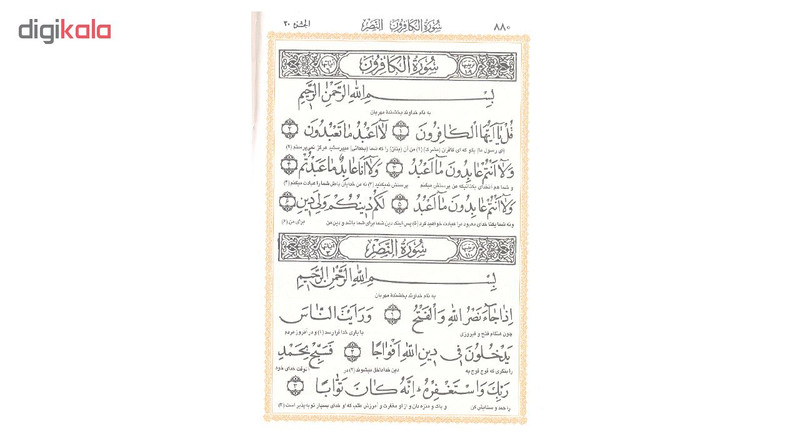 digikala
۸۸۰
سُورَةُ الْكَافِرُونَ النَّصْر
الجزء ۳۰
سُورَةُ الْكَافِرُونَ
بِسْمِ اللهِ الرَّحْمٰنِ الرَّحِيمِ
به نام خداوند بخشندهٔ مهربان
قُلْ يَا أَيُّهَا الْكَافِرُونَ ۱ لَا أَعْبُدُ مَا تَعْبُدُونَ ۲
(ای رسول ما) بگو که ای کافران (مشرک) (۱) من آن (بتان) را که شما (بخدائی) میپرستید هرگز نمی‌پرستم (۲)
وَلَا أَنْتُمْ عَابِدُونَ مَا أَعْبُدُ ۳ وَلَا أَنَا عَابِدٌ مَا عَبَدْتُمْ ۴
و شما هم آنخدای یکتائیکه من پرستش میکنم پرستش نمیکنید (۳) نه من خدایان باطل شما را عبادت میکنم (۴)
وَلَا أَنْتُمْ عَابِدُونَ مَا أَعْبُدُ ۵ لَكُمْ دِينُكُمْ وَلِيَ دِينِ ۶
و نه شما یکتا خدای معبود مرا عبادت خواهید کرد (۵) پس اینک دین شما برای شما باشد و دین من برای من (۶)
سُورَةُ النَّصْر
بِسْمِ اللهِ الرَّحْمٰنِ الرَّحِيمِ
به نام خداوند بخشندهٔ مهربان
إِذَا جَاءَ نَصْرُ اللهِ وَالْفَتْحُ ۱ وَرَأَيْتَ النَّاسَ
چون هنگام فتح و فیروزی با یاری خدا فرارسد (۱) و در آنروز مردم
يَدْخُلُونَ فِي دِينِ اللهِ أَفْوَاجًا ۲ فَسَبِّحْ بِحَمْدِ
را بنگری که فوج فوج به دین خدا داخل میشوند (۲) در آنوقت خدای خود
رَبِّكَ وَاسْتَغْفِرْهُ إِنَّهُ كَانَ تَوَّابًا ۳
را حمد و ستایش کن و پاک و منزه بدان و از او مغفرت و آمرزش طلب که او خدای بسیار توبه‌پذیر است (۳)